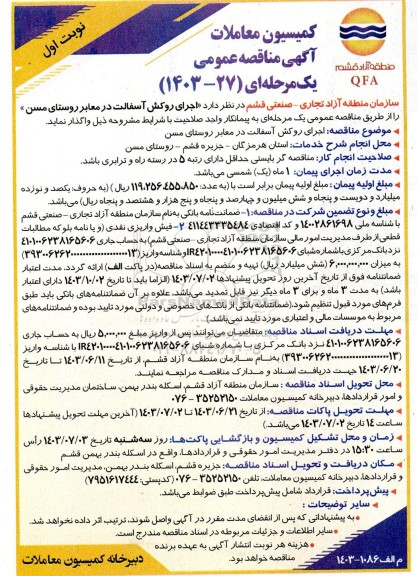 نوبت اول
کمیسیون معاملات
آگهی مناقصه عمومی
یک مرحله‌ای (۲۷-۱۴۰۳)
منطقه آزاد قشم
QFA
سازمان منطقه آزاد تجاری - صنعتی قشم در نظر دارد «اجرای روکش آسفالت در معابر روستای مسن»
را از طریق مناقصه عمومی یک مرحله‌ای به پیمانکار واجد صلاحیت با شرایط مشروحه ذیل واگذار نماید.
موضوع مناقصه: اجرای روکش آسفالت در معابر روستای مسن
محل انجام شرح خدمات: استان هرمزگان - جزیره قشم - روستای مسن
صلاحیت انجام کار: مناقصه گر بایستی حداقل دارای رتبه ۵ در رسته راه و ترابری باشد.
مدت زمان اجرای پیمان: ۱ ماه (یک شمسی) می‌باشد.
مبلغ اولیه پیمان: مبلغ اولیه پیمان برابر است با (به عدد: ۱۱۹،۲۵۶،۴۵۵،۸۵۰ ریال) (به حروف: یکصد و نوزده
میلیارد و دویست و پنجاه و شش میلیون و چهارصد و پنجاه و پنج هزار و هشتصد و پنجاه ریال) می‌باشد.
مبلغ و نوع تضمین شرکت در مناقصه: ۱- ضمانت‌نامه بانکی به‌نام سازمان منطقه آزاد تجاری - صنعتی قشم
با شناسه ملی ۱۴۰۰۲۸۶۱۶۹۸ و کد اقتصادی ۴۱۱۴۴۳۳۳۵۴۸۴ ۲- فیش واریزی نقدی (و یا نامه بلوکه مطالبات
قطعی از طرف مدیریت امور مالی سازمان منطقه آزاد تجاری - صنعتی قشم) به حساب جاری ۴۱۰۱۰۰۶۲۳۸۱۶۵۶۰۶
نزد بانک مرکزی با شماره شبای
۶،۰۰۰،۰۰۰،۰۰۰ ریال (شش میلیارد ریال) تهیه و منضم به اسناد مناقصه (در پاکت الف) ارائه گردد. مدت اعتبار
ضمانتنامه فوق از تاریخ آخرین روز تحویل پیشنهادها ۱۴۰۳/۰۷/۰۲ (الزاما باید تا تاریخ ۱۴۰۳/۱۰/۰۲ دارای اعتبار
باشد) به مدت ۳ ماه و برای ۳ ماه دیگر نیز قابل تمدید می‌باشد. علاوه بر آن ضمانتنامه‌های بانکی باید طبق
فرم‌های مورد قبول تنظیم شود. (ضمانتنامه بانکی از بانک‌های خصوصی و دولتی مورد تایید بوده و ضمانتنامه‌های
مربوط به موسسات مالی و اعتباری مورد تایید نمی‌باشد.)
مهلت دریافت اسناد مناقصه: متقاضیان می‌توانند پس از واریز مبلغ ۵،۰۰۰،۰۰۰ ریال به حساب جاری
۴۱۰۱۰۰۶۲۳۸۱۶۵۶۰۶ نزد بانک مرکزی با شماره شبای با شناسه واریز
به‌نام سازمان منطقه آزاد قشم، از تاریخ ۱۴۰۳/۰۶/۱۱ تا تاریخ
۱۴۰۳/۰۶/۲۰ جهت دریافت اسناد و مدارک مناقصه مراجعه نمایند.
محل تحویل اسناد مناقصه: سازمان منطقه آزاد قشم، اسکله بندر بهمن، ساختمان مدیریت حقوقی
و امور قراردادها، دبیرخانه کمیسیون معاملات ۳۵۲۵۲۱۵۰ - ۰۷۶
مهلت تحویل پاکات مناقصه: از تاریخ ۱۴۰۳/۰۶/۲۱ تا ۱۴۰۳/۰۷/۰۲ (آخرین مهلت تحویل پیشنهادها
ساعت ۱۴ تاریخ ۱۴۰۳/۰۷/۰۲ می‌باشد.)
زمان و محل تشکیل کمیسیون و بازگشایی پاکت‌ها: روز سه‌شنبه تاریخ ۱۴۰۳/۰۷/۰۳ رأس
ساعت ۱۵:۳۰ در دفتر مدیریت امور حقوقی و قراردادها، واقع در اسکله بندر بهمن قشم
مکان دریافت و تحویل اسناد مناقصه: جزیره قشم، اسکله بندر بهمن، مدیریت امور حقوقی
و قراردادها دبیرخانه کمیسیون معاملات. تلفن ۳۵۲۵۲۱۵۰ - ۰۷۶ (کدپستی: ۷۹۵۱۶۱۷۴۴۴)
پیش‌پرداخت: قرارداد شامل پیش‌پرداخت طبق ضوابط می‌باشد.
سایر توضیحات:
به پیشنهاداتی که پس از انقضای مدت مقرر در آگهی واصل شوند، ترتیب اثر داده نخواهد شد.
سایر اطلاعات و جزئیات مربوطه در اسناد مناقصه مندرج است.
هزینه هر نوبت انتشار آگهی به عهده برنده
مناقصه خواهد بود.
دبیرخانه کمیسیون معاملات
م الف ۱۰۸۶-۱۴۰۳